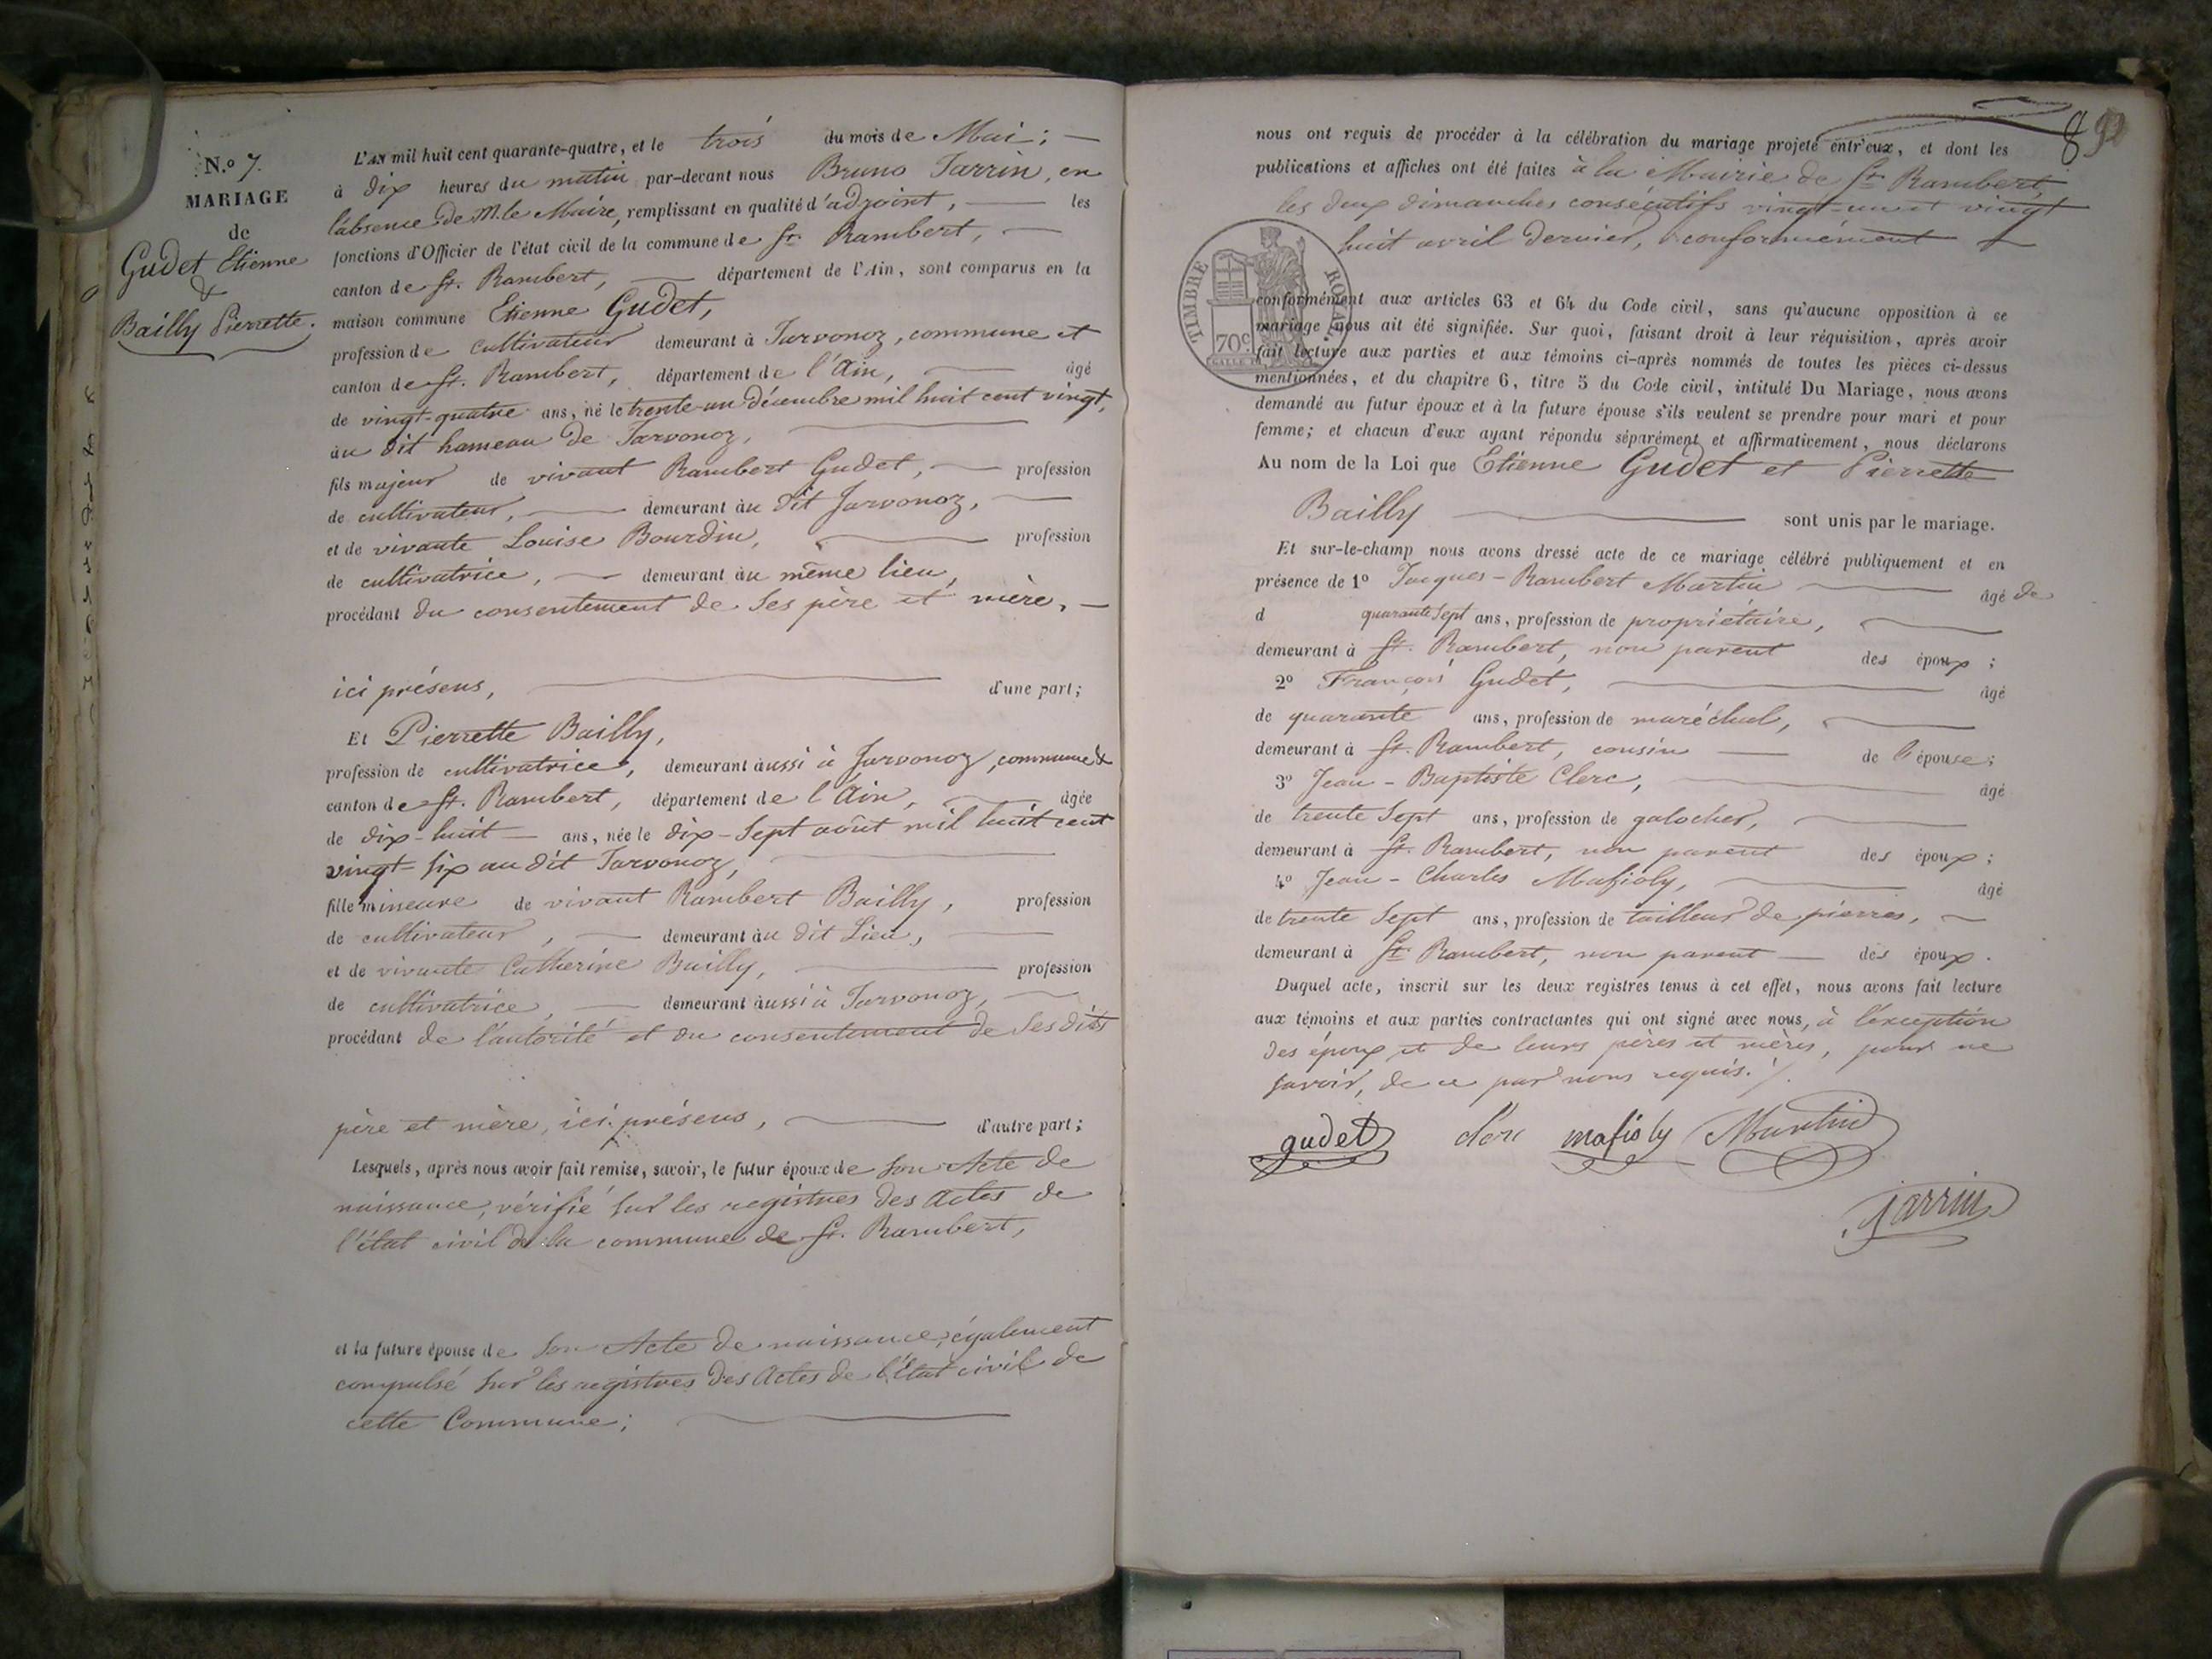 N.º 7.
MARIAGE
de
Gudet Etienne
&
Bailly Pierrette.
L'AN mil huit cent quarante-quatre, et le trois du mois de Mai ;
à dix heures du matin par-devant nous Bruno Jarrin, en
l'absence de M. le Maire, remplissant en qualité d'adjoint, les
fonctions d'Officier de l'état civil de la commune de St. Rambert,
canton de St. Rambert, département de l'Ain, sont comparus en la
maison commune Etienne Gudet,
profession de cultivateur demeurant à Jarvonoz, commune et
canton de St. Rambert, département de l'Ain, âgé
de vingt-quatre ans, né le trente-un décembre mil huit cent vingt,
au dit hameau de Jarvonoz,
fils majeur de vivant Rambert Gudet, profession
de cultivateur, demeurant au dit Jarvonoz,
et de vivante Louise Bourdin, profession
de cultivatrice, demeurant au même lieu,
procédant du consentement de ses père et mère,
ici présens, d'une part ;
Et Pierrette Bailly,
profession de cultivatrice, demeurant aussi à Jarvonoz, commune &
canton de St. Rambert, département de l'Ain, âgée
de dix-huit ans, née le dix-sept août mil huit cent
vingt-six au dit Jarvonoz,
fille mineure de vivant Rambert Bailly, profession
de cultivateur, demeurant au dit Lieu,
et de vivante Catherine Bailly, profession
de cultivatrice, demeurant aussi à Jarvonoz,
procédant de l'autorité et du consentement de ses dits
père et mère, ici présens, d'autre part ;
Lesquels, après nous avoir fait remise, savoir, le futur époux de son Acte de
naissance, vérifié sur les registres des Actes de
l'état civil de la commune de St. Rambert,
et la future épouse de son Acte de naissance, également
compulsé sur les registres des Actes de l'Etat civil de
cette Commune ;
89
nous ont requis de procéder à la célébration du mariage projeté entr'eux, et dont les
publications et affiches ont été faites à la Mairie de St. Rambert,
les deux dimanches consécutifs vingt-un et vingt
huit avril dernier, conformément
TIMBRE ROYAL.
70c
conformément aux articles 63 et 64 du Code civil, sans qu'aucune opposition à ce
mariage nous ait été signifiée. Sur quoi, faisant droit à leur réquisition, après avoir
fait lecture aux parties et aux témoins ci-après nommés de toutes les pièces ci-dessus
mentionnées, et du chapitre 6, titre 5 du Code civil, intitulé Du Mariage, nous avons
demandé au futur époux et à la future épouse s'ils veulent se prendre pour mari et pour
femme ; et chacun d'eux ayant répondu séparément et affirmativement, nous déclarons
Au nom de la Loi que Etienne Gudet et Pierrette
Bailly sont unis par le mariage.
Et sur-le-champ nous avons dressé acte de ce mariage célébré publiquement et en
présence de 1º Jacques-Rambert Martin âgé de
d quarante sept ans, profession de propriétaire,
demeurant à St. Rambert, non parent des époux ;
2º François Gudet, âgé
de quarante ans, profession de maréchal,
demeurant à St. Rambert, cousin de l'épouse ;
3º Jean-Baptiste Clerc, âgé
de trente sept ans, profession de galocher,
demeurant à St. Rambert, non parent des époux ;
4º Jean-Charles Mafioly, âgé
de trente sept ans, profession de tailleur de pierres,
demeurant à St. Rambert, non parent des époux.
Duquel acte, inscrit sur les deux registres tenus à cet effet, nous avons fait lecture
aux témoins et aux parties contractantes qui ont signé avec nous, à l'exception
des époux et de leurs pères et mères, pour ne
savoir, de ce par nous requis.
gudet mafioly Martin
Jarrin